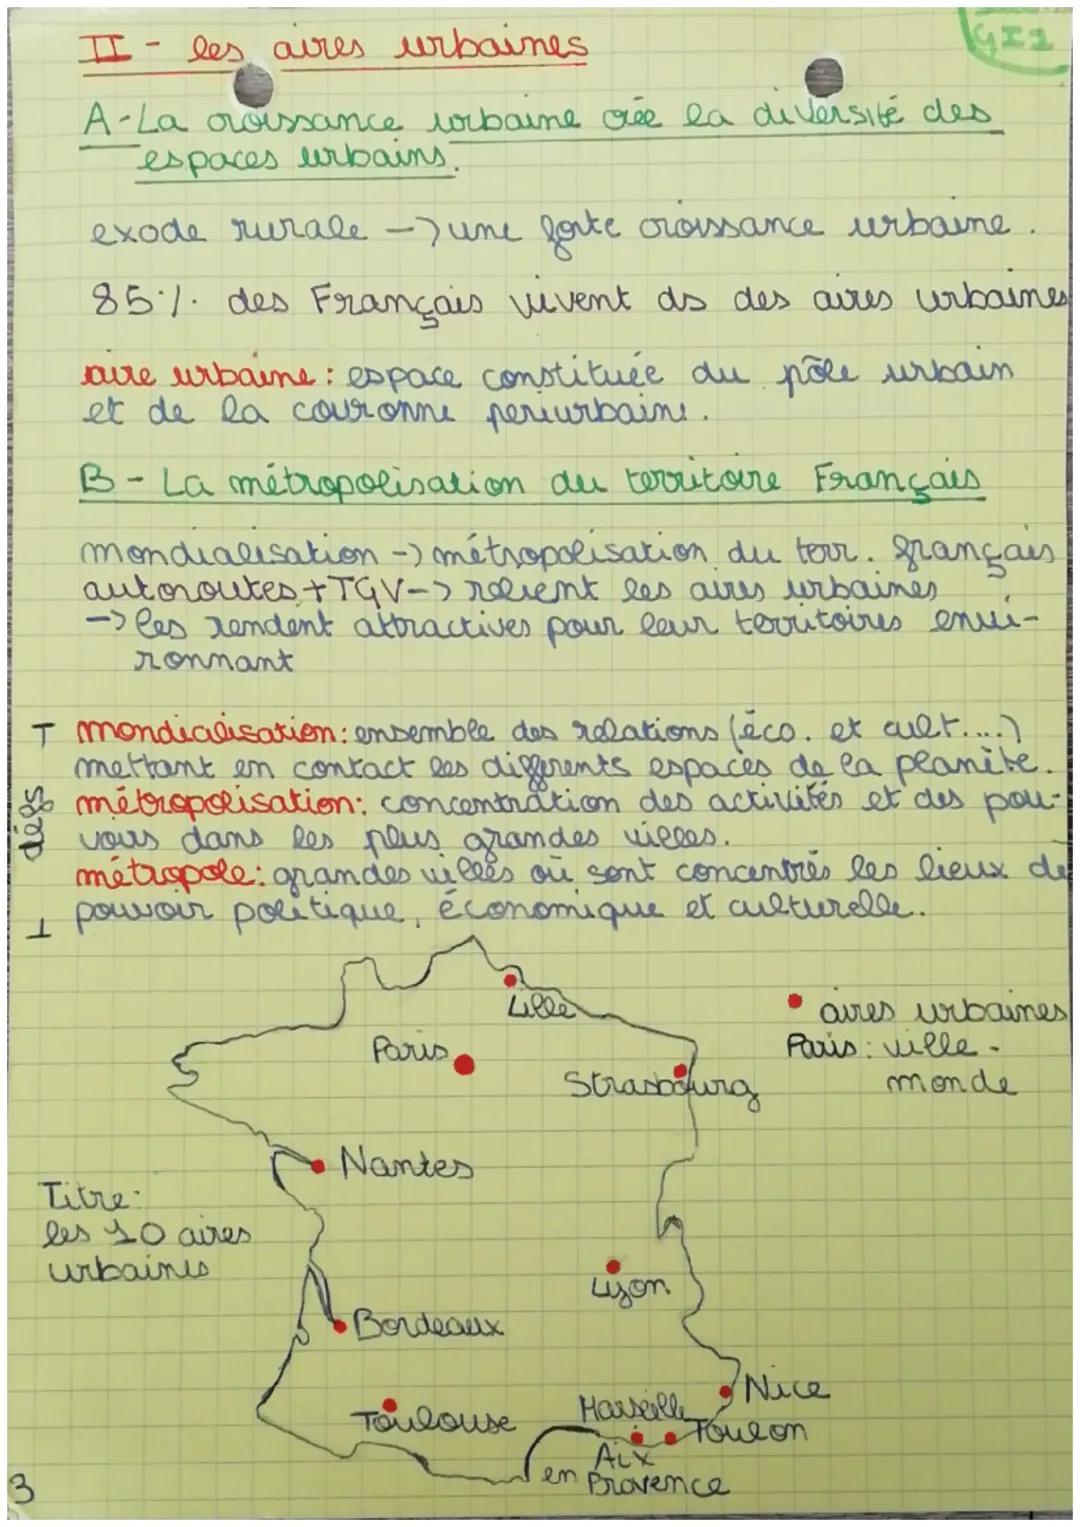 II - les aires urbaines
GI1
A-La croissance urbaine crée la diversité des
espaces urbains.
exode rurale -> une forte croissance urbaine.
85% des Français vivent ds des aires urbaines
aire urbaine : espace constituée du pôle urbain
et de la couronne periurbaine.
B - La métropolisation du territoire Français
mondialisation -> métropolisation du terr. français
autoroutes + TGV -> relient les aires urbaines
-> les rendent attractives pour leur territoires envi-
ronnant
mondialisation : ensemble des relations (éco. et cult....)
mettant en contact les differents espaces de la planète.
métropolisation : concentration des activités et des pou-
voirs dans les plus grandes villes.
métropole : grandes villes où sont concentrés les lieux de
pouvoir politique, économique et culturelle.
Lille
aires urbaines
Paris
Paris : ville-
monde
Strasbourg
Nantes
Titre :
les 10 aires
urbaines
Lyon
Bordeaux
Nice
Toulouse
Marseille
Toulon
Aix
en Provence
3